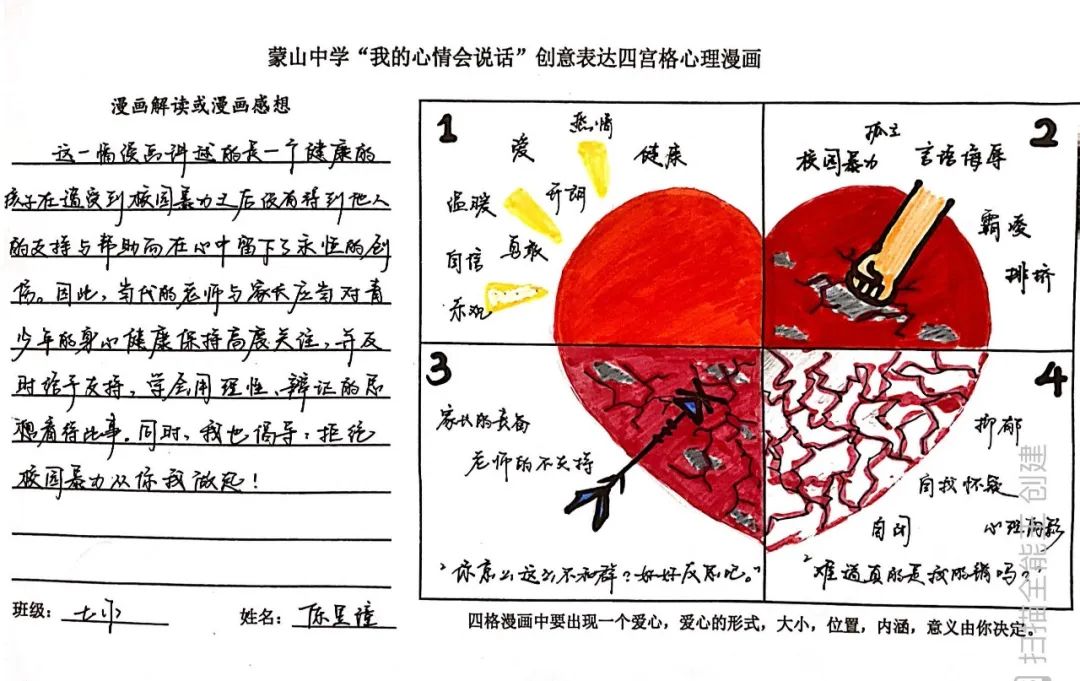 蒙山中学“我的心情会说话”创意表达四宫格心理漫画
漫画解读或漫画感想
这一幅漫画讲述的是一个健康的
孩子在遭受到校园暴力之后没有得到他人
的支持与帮助而在心中留下了永恒的创
伤。因此,当代的老师与家长应当对青
少年的身心健康保持高度关注,并及
时给予支持,学会用理性、辩证的思
想看待此事。同时,我也倡导:拒绝
校园暴力从你我做起!
班级:
姓名: 陈昱潼
1
热情
爱
健康
温暖
开朗
自信
勇敢
乐观
2
孤立
校园暴力
言语侮辱
霸凌
排挤
3
家长的责备
老师的不支持
“你怎么这么不和群?好好反思吧。”
4
抑郁
自我怀疑
自闭
心理阴影
“难道真的是我的错吗?”
四格漫画中要出现一个爱心,爱心的形式,大小,位置,内涵,意义由你决定。
扫描全能王 创建